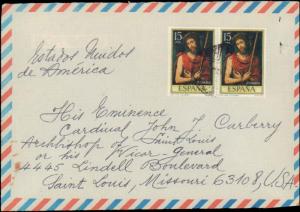 15
15
ESPAÑA
ESPAÑA
Estados Unidos
de América
His Eminence
Cardinal John J. Carberry
Archbishop of Saint Louis
or his Vicar-General
4445 Lindell Boulevard
Saint Louis, Missouri 63108, U.S.A.